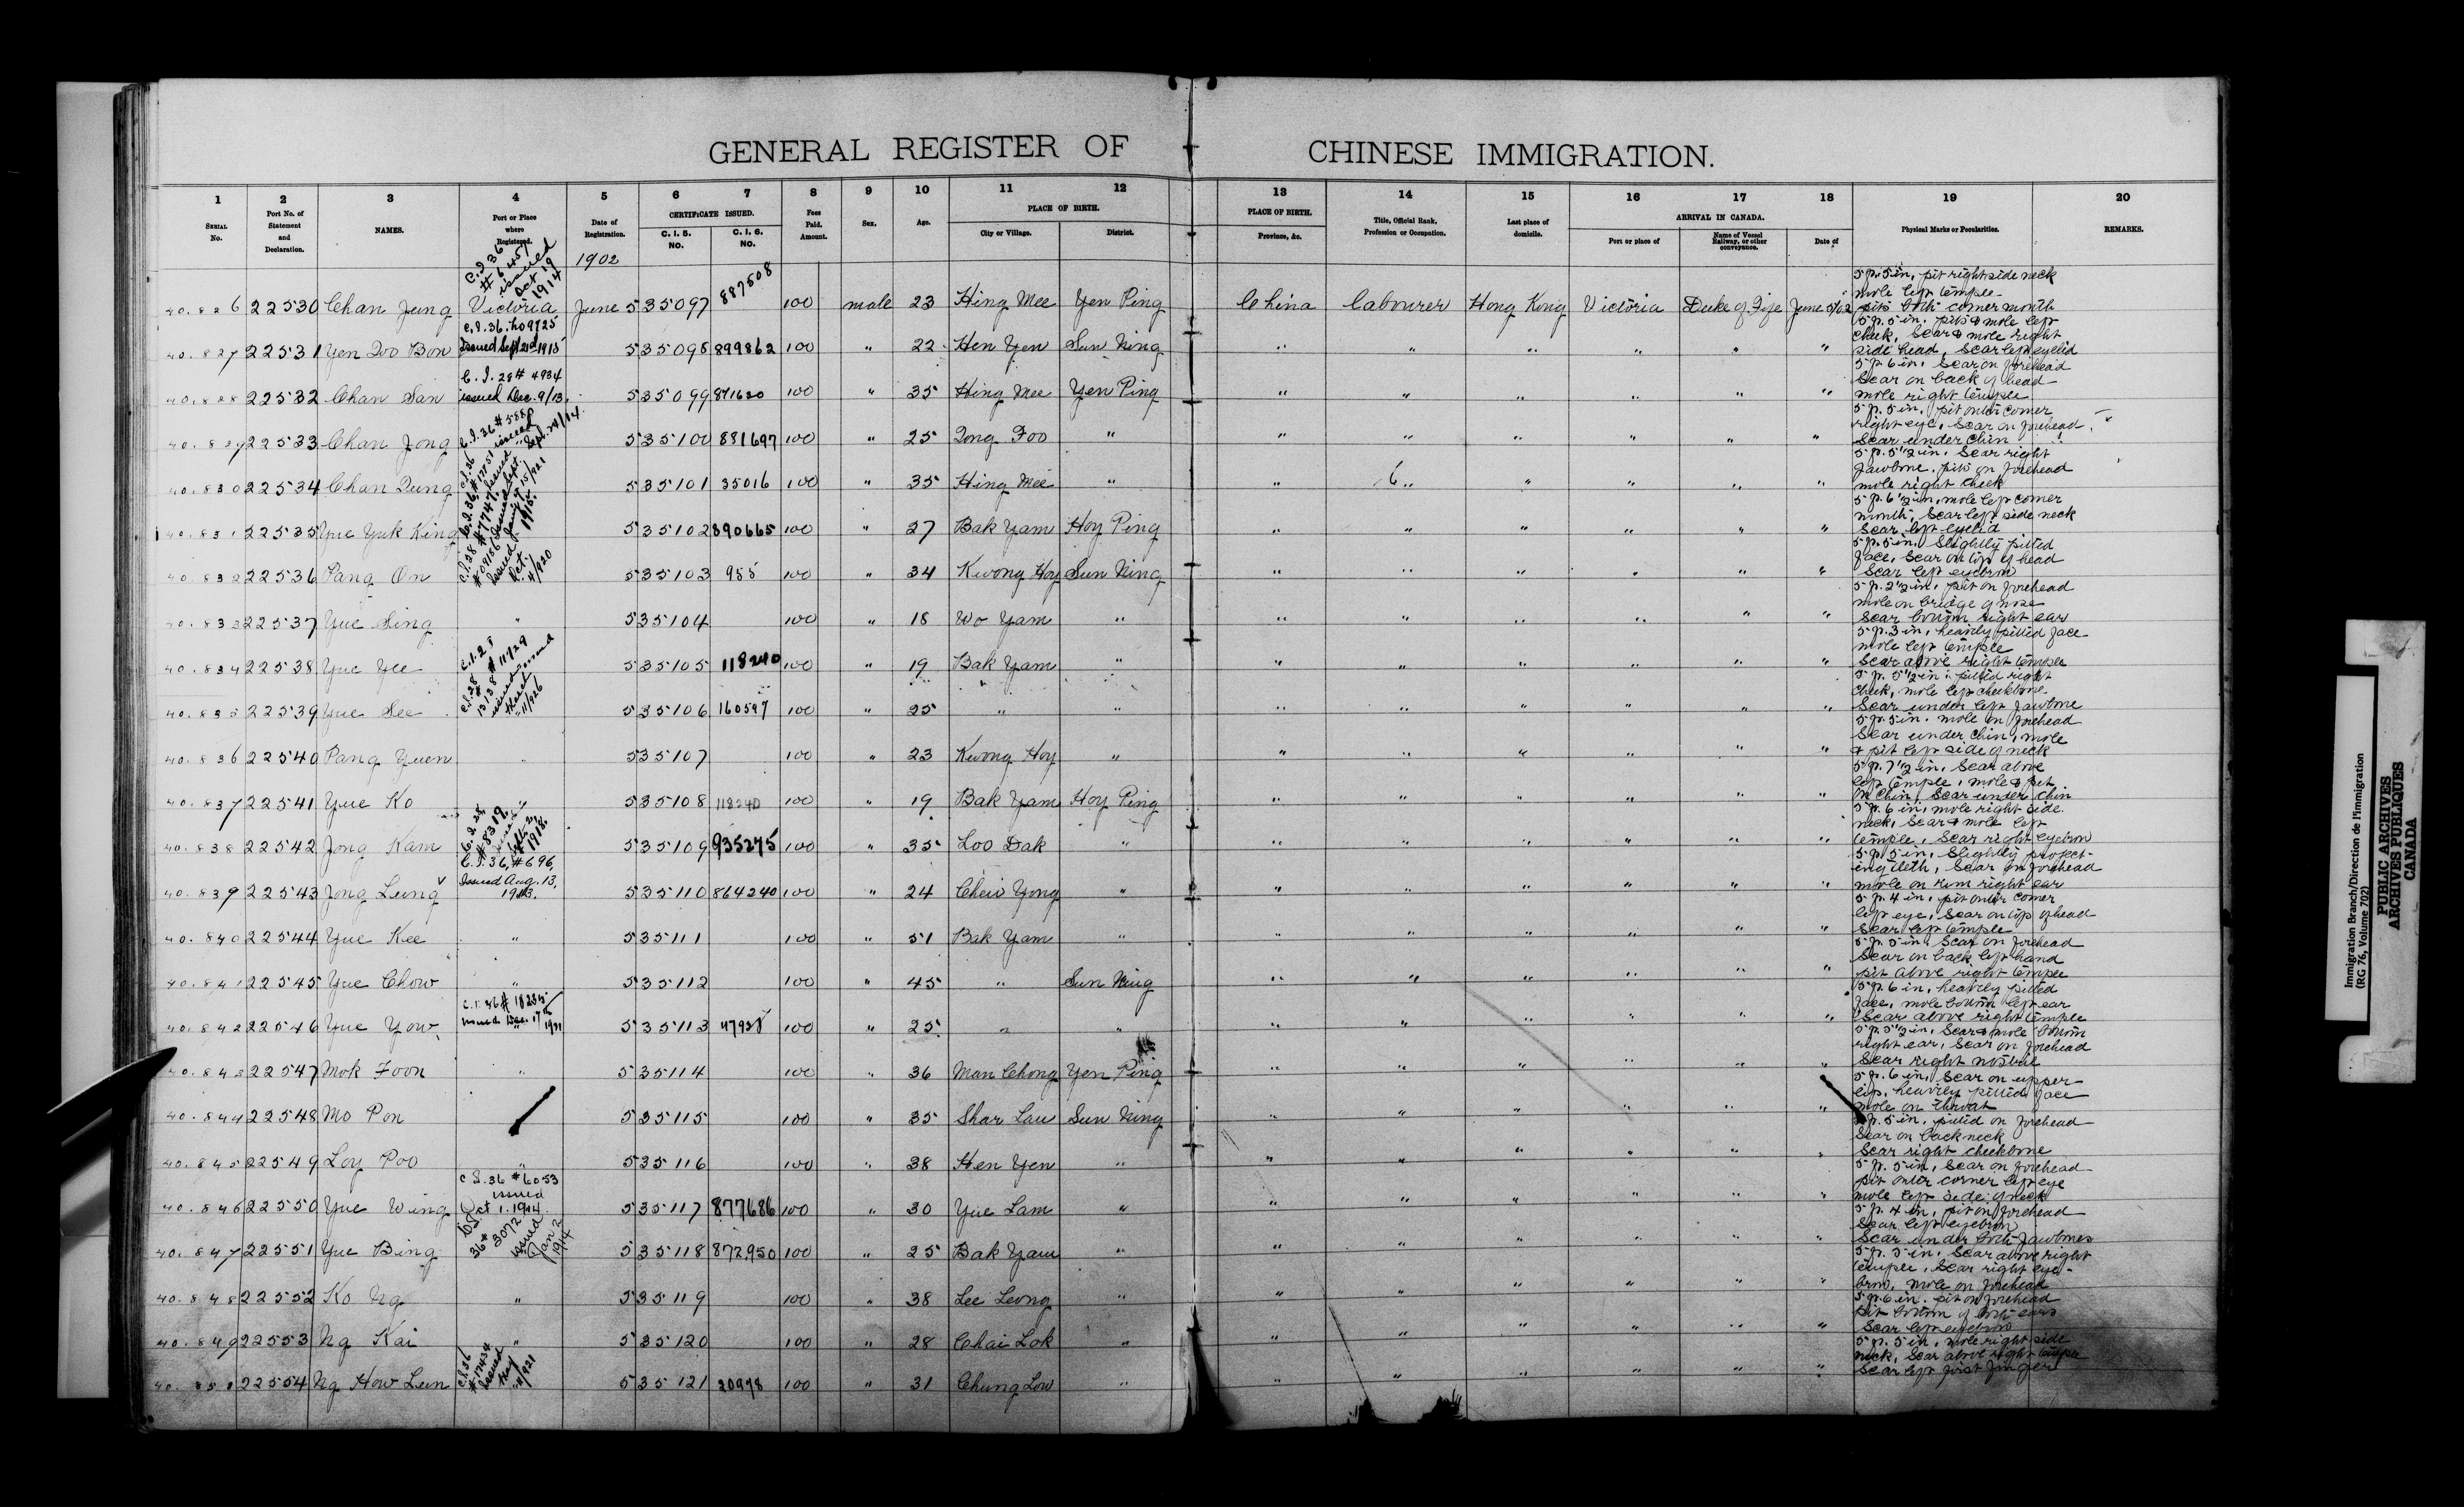 GENERAL REGISTER OF CHINESE IMMIGRATION.
1 2 3 4 5 6 7 8 9 10 11 12 13 14 15 16 17 18 19 20
SERIAL No. Port No. of Statement and Declaration. NAMES. Port or Place where Registered. Date of Registration. CERTIFICATE ISSUED. C. I. 5. NO. C. I. 6. NO. Fees Paid. Amount. Sex. Age. PLACE OF BIRTH. City or Village. District. PLACE OF BIRTH. Province, &c. Title, Official Rank, Profession or Occupation. Last place of domicile. ARRIVAL IN CANADA. Port or place of Name of Vessel Railway, or other conveyance. Date of Physical Marks or Peculiarities. REMARKS.
1902
C.I 36 # 6457 issued Oct 19 1914
40.826 22530 Chan Jung Victoria June 5 35097 887508 100 male 23 Hing Mee Yen Ping China Labourer Hong Kong Victoria Duke of Fife June 5/02
5 ft. 5 in, pit right side neck
mole left temple
pits both corner mouth
C.I.36. no 9725 Issued Sept 21st 1915
40.827 22531 Yen Doo Bon 5 35098 899862 100 " 22 Hen Yen Sun Ning " " " " " "
5 ft. 5 in. pits & mole left
cheek, Scar & mole right
side head, Scar left eyelid
C.I. 28 # 4934 issued Dec. 9/13.
40.828 22532 Chan San 5 35099 871620 100 " 35 Hing Mee Yen Ping " " " " " "
5 ft 6 in. Scar on forehead
Scar on back of head
mole right temple
40.829 22533 Chan Jong 5 35100 881697 100 " 25 Dong Foo " " " " " " "
5 ft. 5 in, pit outer corner
right eye, Scar on forehead
Scar under chin
40.830 22534 Chan Dung 5 35101 35016 100 " 35 Hing Mee " " " " " " "
5 ft. 5 1/2 in. Scar right
Jawbone, pits on forehead
mole right cheek
40.831 22535 Yue Yuk King 5 35102 890665 100 " 27 Bak Yam Hoy Ping " " " " " "
5 ft. 6 1/2 in, mole left corner
mouth, Scar left side neck
Scar left eyelid
40.832 22536 Pang On 5 35103 955 100 " 34 Kwong Hoy Sun Ning " " " " " "
5 ft. 5 in. Slightly pitted
face, Scar on top of head
Scar left eyebrow
40.833 22537 Yue Sing " 5 35104 100 " 18 Wo Yam " " " " " " "
5 ft. 2 1/2 in, pit on forehead
mole on bridge of nose
Scar bottom right ear
40.834 22538 Yue Yee 5 35105 118240 100 " 19 Bak Yam " " " " " " "
5 ft. 3 in, heavily pitted face
mole left temple
Scar above right temple
40.835 22539 Yue See 5 35106 160597 100 " 25 " " " " " " " "
5 ft. 5 1/2 in. pitted right
cheek, mole left cheekbone
Scar under left Jawbone
40.836 22540 Pang Yuen " 5 35107 100 " 23 Kwong Hoy " " " " " " "
5 ft. 5 in. mole on forehead
Scar under chin, mole
& pit left side of neck
40.837 22541 Yue Ko " 5 35108 118240 100 " 19 Bak Yam Hoy Ping " " " " " "
5 ft. 7 1/2 in. Scar above
left temple, mole & pit
on chin, Scar under chin
40.838 22542 Jong Kam 5 35109 935275 100 " 35 Loo Dak " " " " " " "
5 ft. 6 in, mole right side
neck, Scar & mole left
temple, Scar right eyebrow
C.I. 36, # 696, Issued Aug. 13, 1913.
40.839 22543 Jong Leung 5 35110 864240 100 " 24 Cheiv Yong " " " " " " "
5 ft. 5 in, Slightly project-
ing teeth, Scar on forehead
mole on rim right ear
40.840 22544 Yue Kee " 5 35111 100 " 51 Bak Yam " " " " " " "
5 ft. 4 in, pit outer corner
left eye, Scar on top of head
Scar left temple
40.841 22545 Yue Chow " 5 35112 100 " 45 " Sun Ning " " " " " "
5 ft. 5 in, Scar on forehead
Scar on back left hand
pit above right temple
issued Dec. 17th 1921
40.842 22546 Yue Yow 5 35113 100 " 25 " " " " " " " "
5 ft. 6 in, heavily pitted
face, mole bottom left ear
Scar above right temple
40.843 22547 Mok Foon " 5 35114 100 " 36 Man Chong Yen Ping " " " " " "
5 ft. 5 1/2 in, Scar & mole bottom
right ear, Scar on forehead
Scar right nostril
40.844 22548 Mo Pon 5 35115 100 " 35 Shar Lau Sun Ning " " " " " "
5 ft. 6 in, Scar on upper
lip, heavily pitted face
mole on throat
40.845 22549 Loy Poo " 5 35116 100 " 38 Hen Yen " " " " " " "
5 ft. 5 in, pitted on forehead
Scar on back neck
Scar right cheekbone
C I.36 # 6053 issued Oct 1. 1914.
40.846 22550 Yue Wing 5 35117 877686 100 " 30 Yue Lam " " " " " " "
5 ft. 5 in, Scar on forehead
pit outer corner left eye
mole left side of neck
36 # 3072 issued Jan 2 1914
40.847 22551 Yue Bing 5 35118 872,950 100 " 25 Bak Yam " " " " " " "
5 ft. 4 in, pit on forehead
Scar left eyebrow
Scar under both Jawbones
40.848 22552 Ko Ng " 5 35119 100 " 38 Lee Leong " " " " " " "
5 ft. 5 in, Scar above right
temple, Scar right eye-
brow, mole on forehead
40.849 22553 Ng Kai " 5 35120 100 " 28 Chai Lok " " " " " " "
5 ft. 6 in. pit on forehead
pit bottom of both ears
Scar left eyebrow
C.I. 36 # 17434 issued May 4/921
40.850 22554 Ng How Lun 5 35121 20978 100 " 31 Chung Low " " " " " " "
5 ft. 5 in, mole right side
neck, Scar above right temple
Scar left first finger
Immigration Branch/Direction de l'Immigration
(RG 76, Volume 702)
PUBLIC ARCHIVES
ARCHIVES PUBLIQUES
CANADA